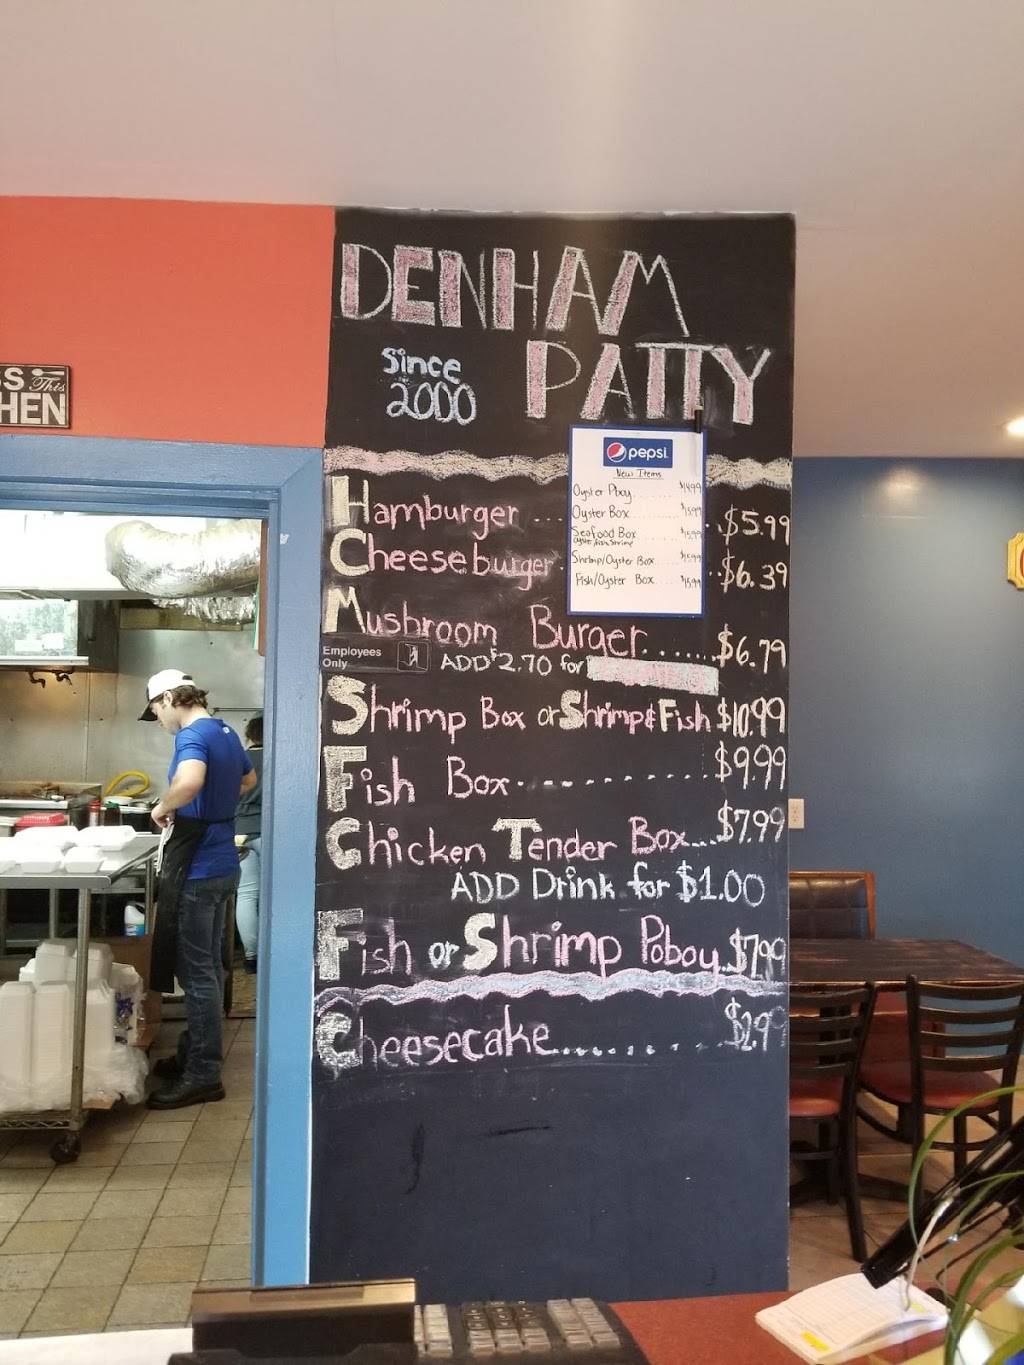 DENHAM
PATTY
Since
2000
pepsi
New Items
Oyster Pboy........ $14.99
Oyster Box......... $15.99
Seafood Box ....... $15.99
Shrimp/Oyster Box.... $15.99
Fish/Oyster Box..... $15.99
Hamburger .... $5.99
Cheeseburger... $6.39
Mushroom Burger....... $6.79
Employees
Only
ADD $2.70 for
Shrimp Box or Shrimp & Fish $10.99
Fish Box........... $9.99
Chicken Tender Box.... $7.99
ADD Drink for $1.00
Fish or Shrimp Poboy.. $7.99
Cheesecake.......... $2.9
SS This
HEN